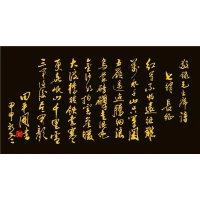 敬录毛主席诗
七律 长征
红军不怕远征难
萬水千山只等闲
五岭逶迤腾细浪
乌蒙磅礴走泥丸
金沙水拍云崖暖
大渡桥横铁索寒
更喜岷山千里雪
三军过后尽开颜
甲申